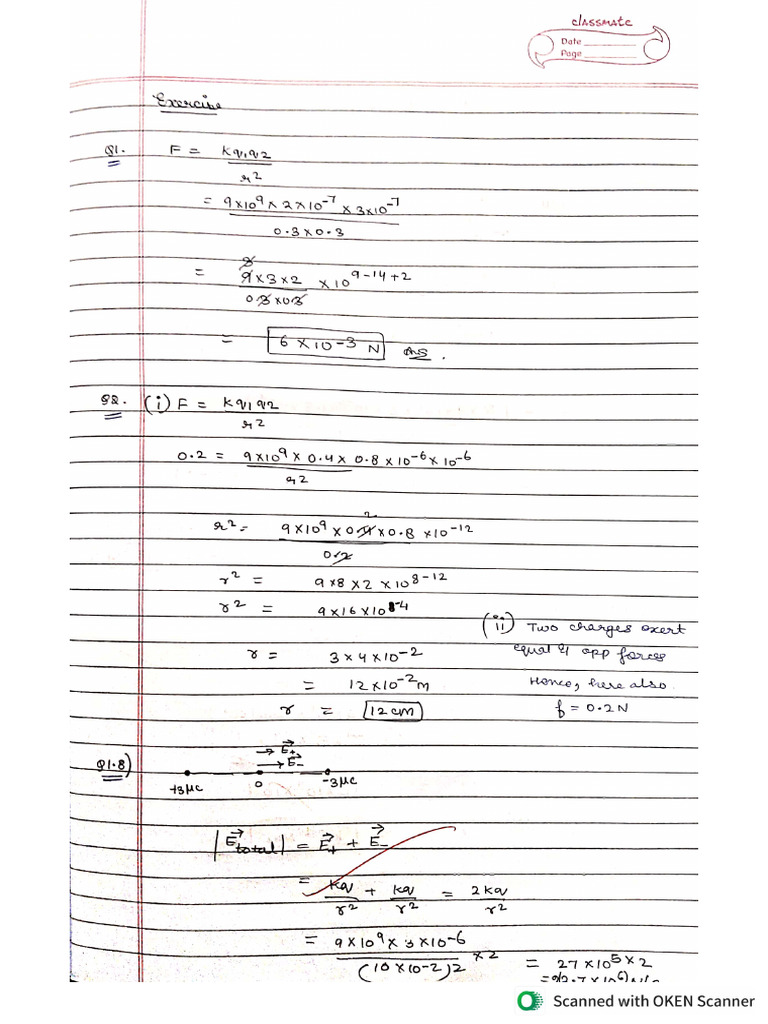 classmate
Date
Page
Exercise
Q1. F = kq1q2
r2
= 9×10^9 × 2×10^-7 × 3×10^-7
0.3×0.3
3
= 9×3×2 ×10^9-14+2
0.3×0.3
= 6×10^-3 N Ans.
Q2. (i) F = kq1q2
r2
0.2 = 9×10^9 × 0.4 × 0.8×10^-6×10^-6
r2
2
r2= 9×10^9×0.4×0.8×10^-12
0.2
r2 = 9×8×2×10^8-12
r2 = 9×16×10^-4
r = 3×4×10^-2
= 12×10^-2m
r = 12cm
(ii) Two charges exert
equal & opp forces
Hence, here also.
f = 0.2N
Q1.8)
→ E+
→ E-
+3μC 0 -3μC
|Etotal| = E+ + E-
= kq + kq = 2kq
r2 r2 r2
= 9×10^9×3×10^-6 ×2 = 27×10^5×2
(10×10-2)2
Scanned with OKEN Scanner